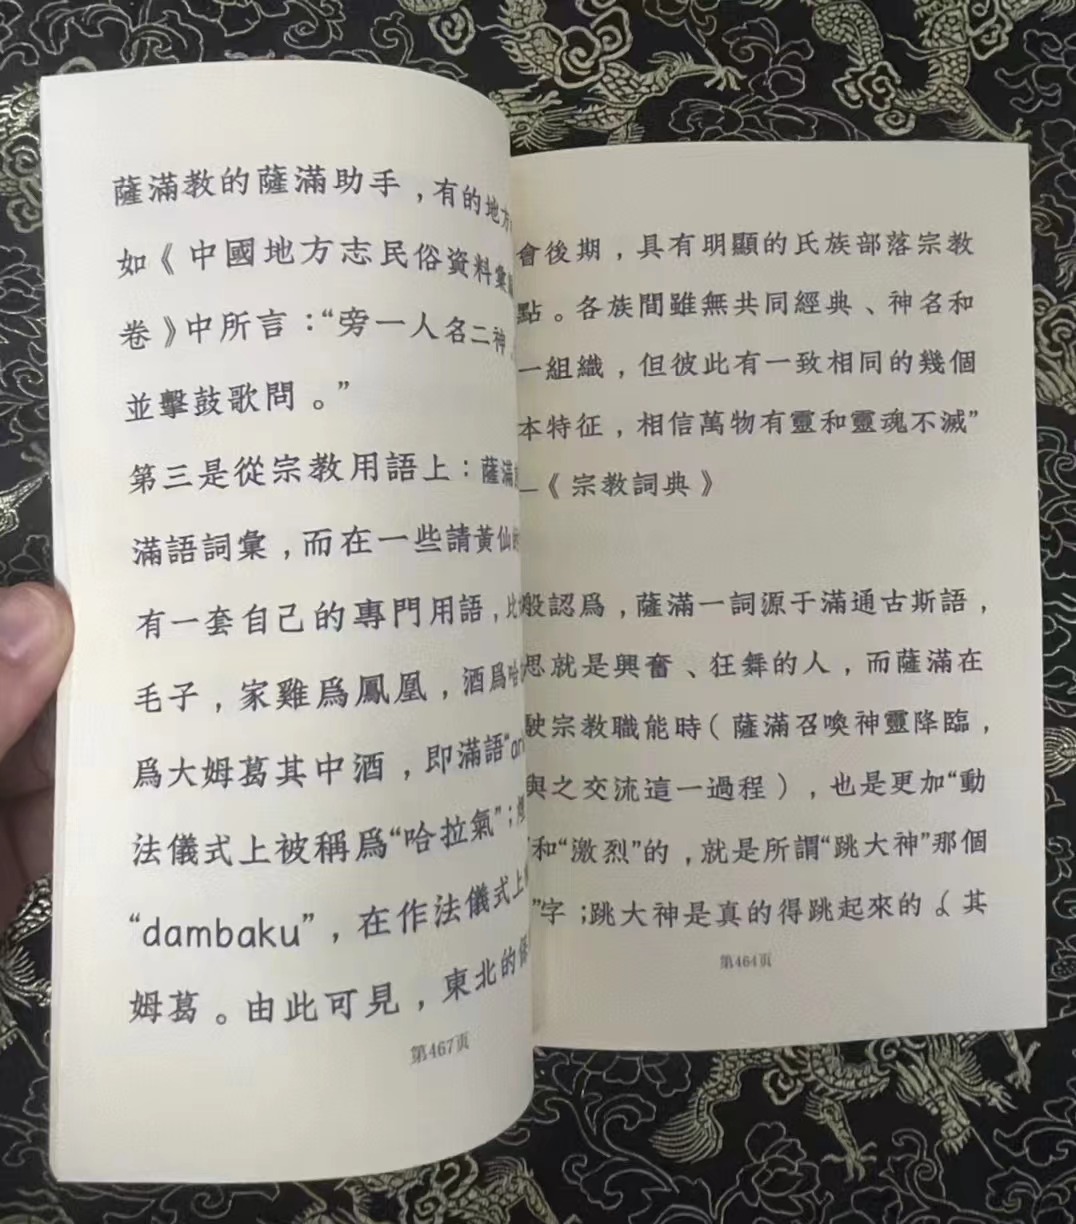 薩滿教的薩滿助手，有的地方
如《中國地方志民俗資料彙
卷》中所言：“旁一人名二神
並擊鼓歌問。”
第三是從宗教用語上：薩滿
滿語詞彙，而在一些請黃仙
有一套自己的專門用語，比
毛子，家雞爲鳳凰，酒爲哈
爲大姆葛其中酒，即滿語“ar
法儀式上被稱爲“哈拉氣”；
“dambaku”，在作法儀式上
姆葛。由此可見，東北的
第467页
會後期，具有明顯的氏族部落宗教
點。各族間雖無共同經典、神名和
一組織，但彼此有一致相同的幾個
本特征，相信萬物有靈和靈魂不滅”
—《宗教詞典》
般認爲，薩滿一詞源于滿通古斯語，
思就是興奮、狂舞的人，而薩滿在
駛宗教職能時（薩滿召喚神靈降臨，
與之交流這一過程），也是更加“動
和“激烈”的，就是所謂“跳大神”那個
”字；跳大神是真的得跳起來的，其
第464页